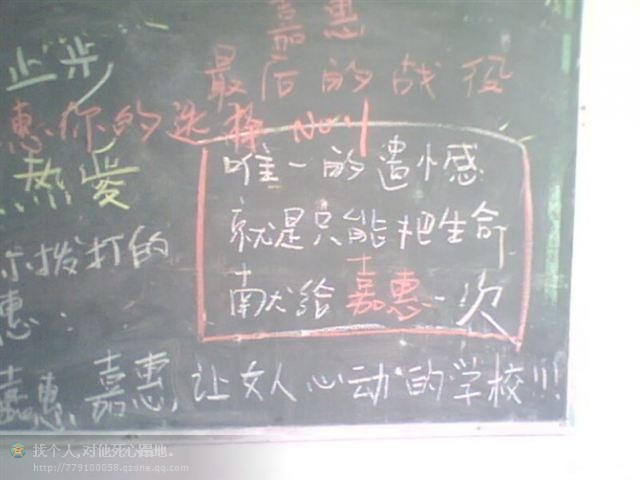 嘉惠
止步
最后的战役
惠你的选择 No.1
热爱
唯一的遗憾
就是只能把生命
南犬给嘉惠一次
尔拨打的
惠:
嘉惠,嘉惠,让女人心动的学校!!!
找个人,对他死心蹋地.
http://779100058.qzone.qq.com